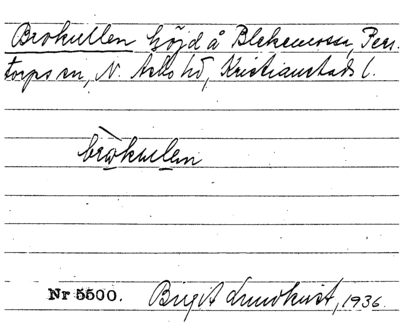 Brokullen höjd å Blekemossa, Pers-
torps sn, N. Åsbo hd, Kristianstads l.
bròkullen
Nr 5500. Birgit Lundkvist, 1936.